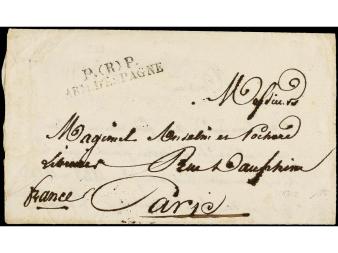 P.(R)P.
ARM. D'ESPAGNE
Messieurs
Magimel Anselin et Pochard
Libraires Rue Dauphine
france Paris